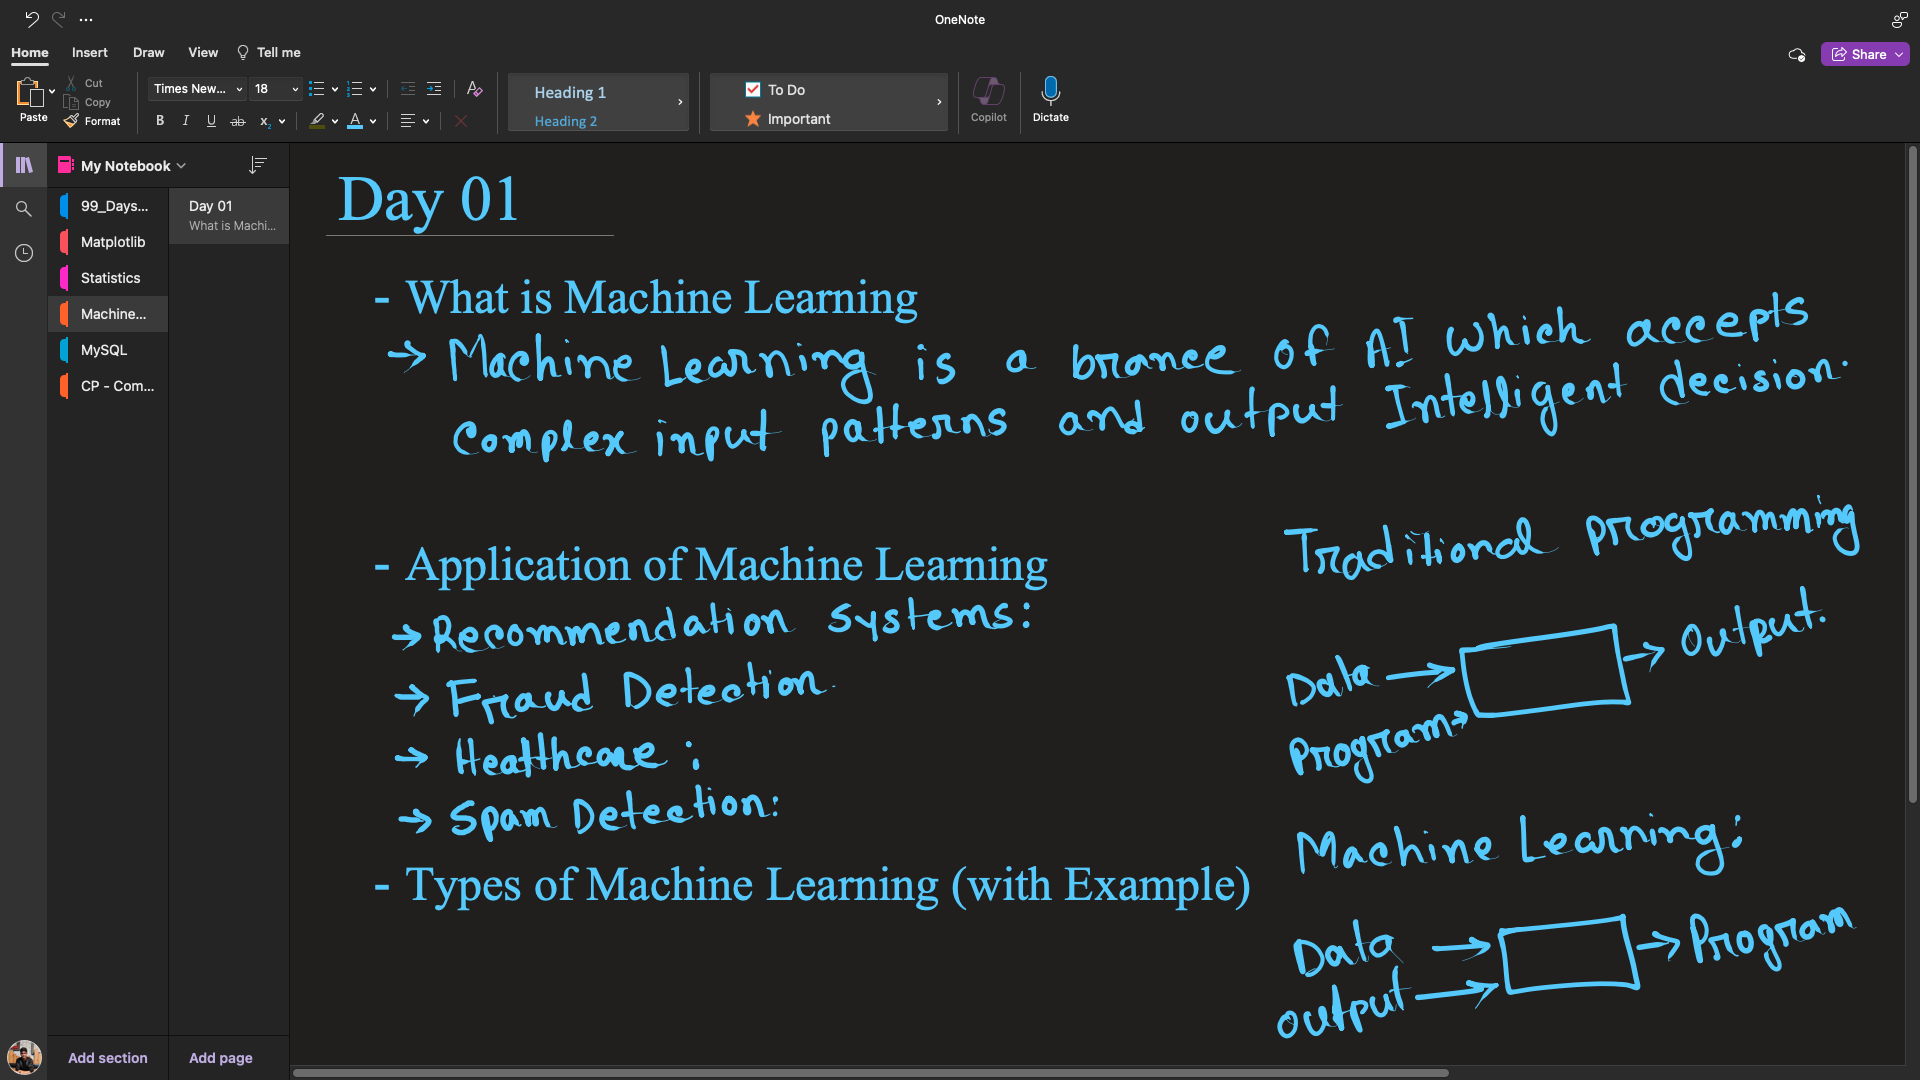 OneNote
Home Insert Draw View Tell me
Share
Paste
Cut
Copy
Format
Times New... 18
B I U ab x₂ A
Heading 1
Heading 2
To Do
Important
Copilot
Dictate
My Notebook
99_Days...
Matplotlib
Statistics
Machine...
MySQL
CP - Com...
Add section
Day 01
What is Machi...
Add page
Day 01
- What is Machine Learning
→ Machine Learning is a brance of AI which accepts
Complex input patterns and output Intelligent decision.
- Application of Machine Learning
→ Recommendation Systems:
→ Fraud Detection.
→ Healthcare :
→ Spam Detection:
- Types of Machine Learning (with Example)
Traditional programming
Data → → Output.
Program→
Machine Learning:
Data → → Program
output →